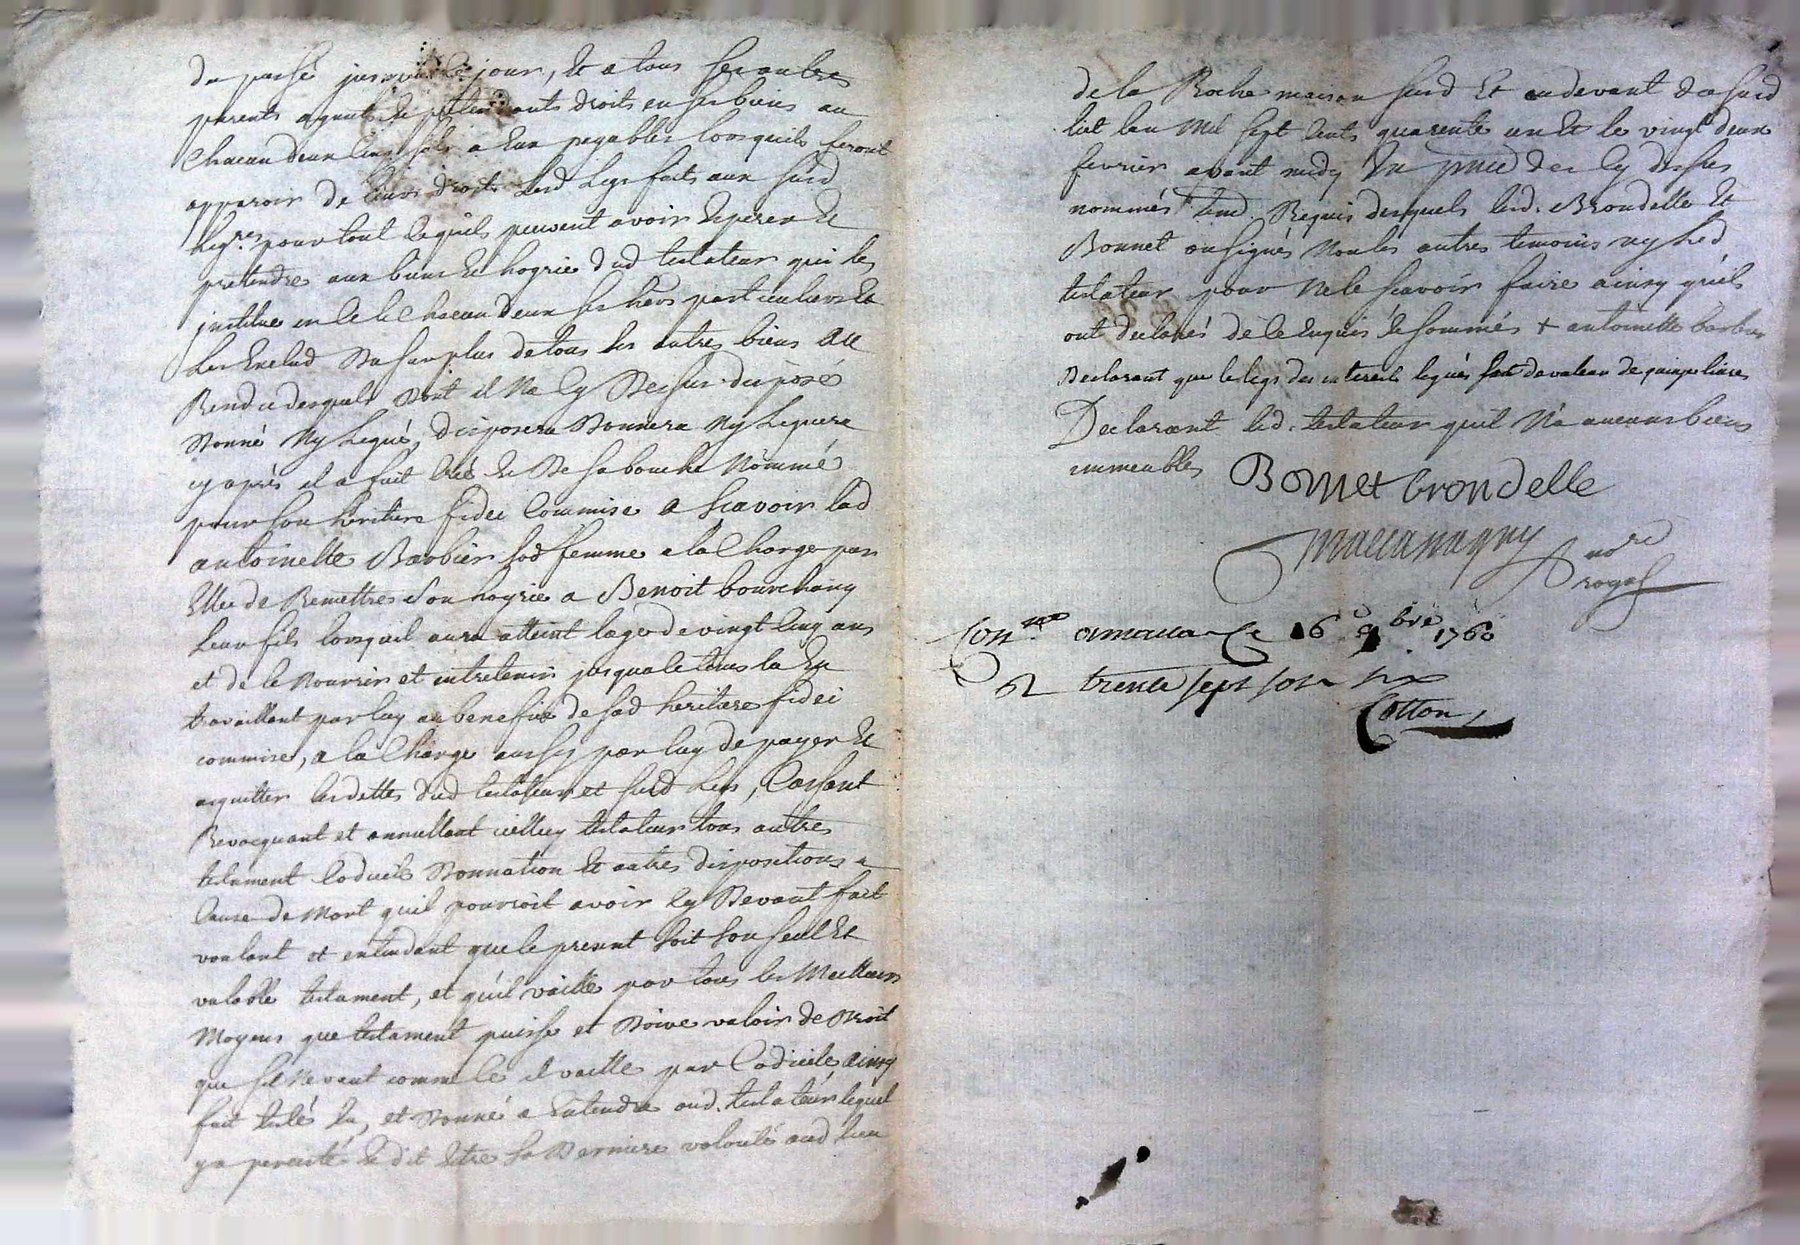 du passé jusqu'a ce jour, Et a tous ses autres
parents ayants et pretendants droits en ses biens au
Chacun deux Cinq sols a Eux payables lorsquils feront
apparoir de leurs droits lesd legs faits aux susd
leg.res pour tout ce quils peuvent avoir Esperer Et
pretendre aux biens Et hoyrie dud testateur qui les
institue en ce Chacun deux ses hers particuliers Et
Les Exclud Du surplus de tous ses autres biens Au
Residu desquels Dont il Na Cy Dessus disposé
Donné Ny Legué, disposera Donnera Ny Leguera
cy apres il a fait Créé et De sa bouche Nommé
pour son heritiere fidei Commise a Scavoir lad
antoinette Barbier sad femme a la Charge par
Elle de Remettre son hoyrie a Benoit bourchany
Leur fils lorsquil aura atteint lage de vingt Cinq ans
et de le Nourrir et entretenir jusqua le tems la En
travaillant par luy au benefice de sad heritiere fidei
commise, a la Charge aussy par luy de payer Et
acquitter les dettes dud testateur et susd legs, Cassant
Revocquant et annullant icelluy testateur tous autres
testament Codicile Donnation Et autres dispositions a
Cause de Mort quil pourroit avoir Cy Devant fait
voulant et entendant que le present soit son seul Et
valable testament, et quil vaille par tous les Meilleurs
Moyens que testament puisse et Doive valoir de Droit
que sil Ne vaut comme ce il vaille par Codicile ainsy
fait testé lu, et Donné a Entendre aud. testateur lequel
y a percisté Et dit Estre sa Derniere volonté aud lieu
de la Roche maison susd Et au devant de susd
lict lan Mil sept Cents quarente un Et le vingt deux
fevrier avant midy En pnce des Cy dessus
nommés tem.d Requis desquels lesd. Brondelle Et
Bonnet ont signés Non les autres temoins ny led
testateur pour Ne le scavoir faire ainsy qu'ils
ont declarés de ce Enquis Et sommés + antoinette barbier
Declarant que le legs des interets legués sont de valeur de quinze livres
Declarant led. testateur quil N'a aucuns biens
immeubles Bonnet brondelle
no.re
royal
Con.lle a 16 e 9bre 1760
R trente sept sols six
Cotton